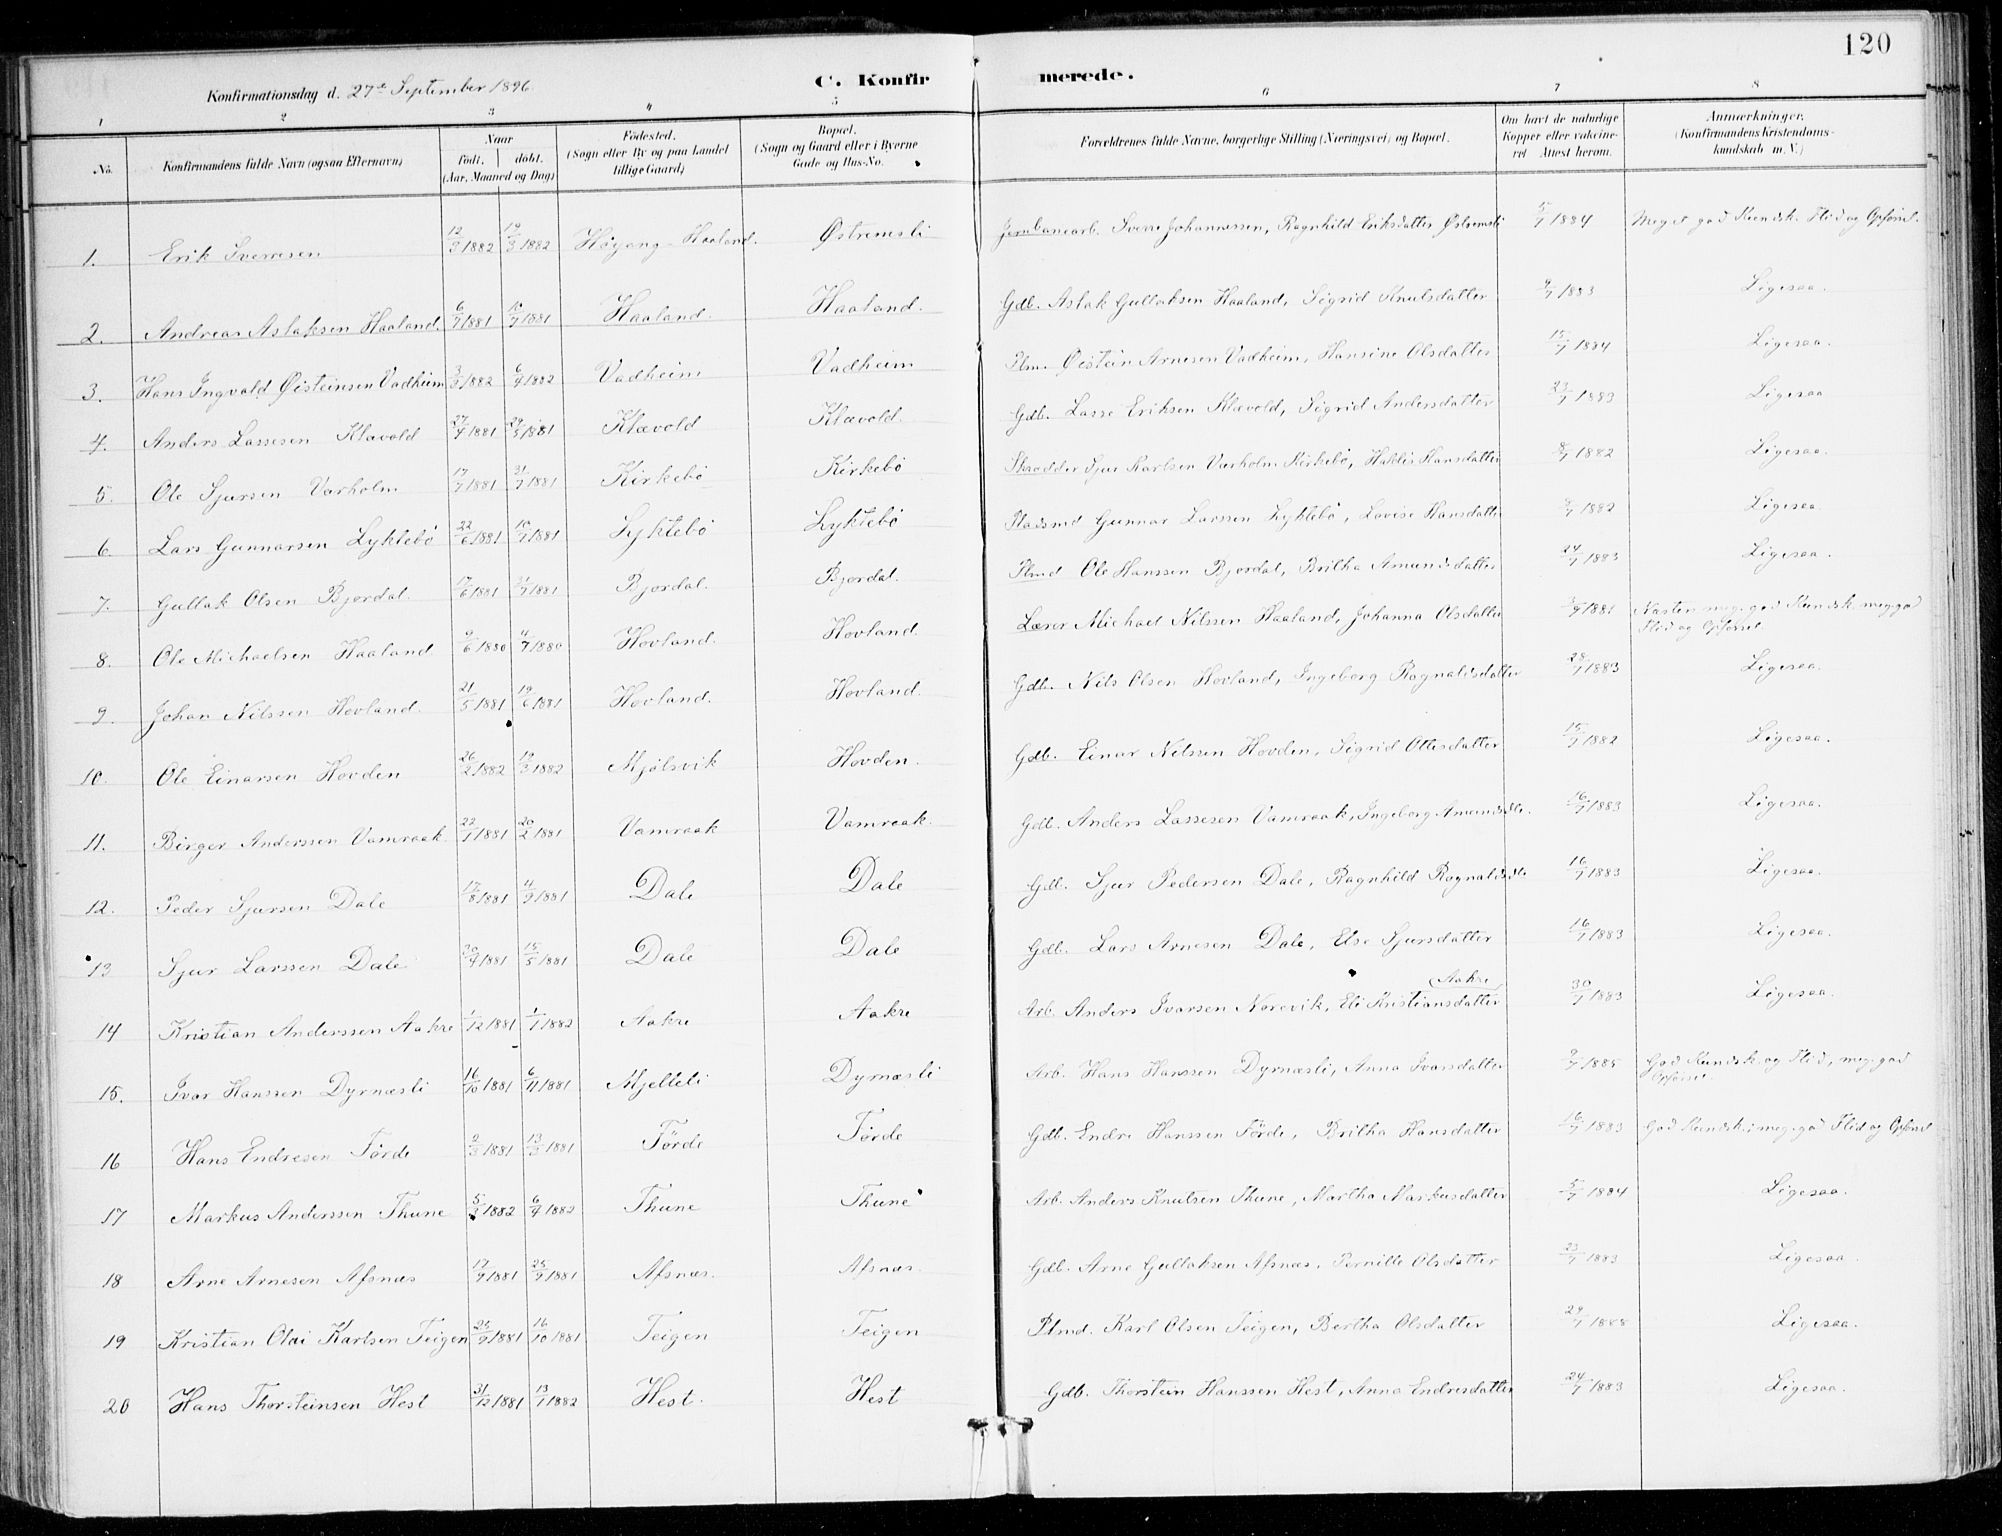 120
C. Konfirmerede.
Konfirmationsdag d. 27de September 1896.
1 2 3 4 5 6 7 8
No. Konfirmandens fulde Navn (ogsaa Efternavn) Naar født, døbt. (Aar, Maaned og Dag) Fødested. (Sogn eller By og paa Landet tillige Gaard) Bopæl. (Sogn og Gaard eller i Byerne Gade og Hus-No. Forældrenes fulde Navne, borgerlige Stilling (Næringsvei) og Bopæl. Om havt de naturlige Kopper eller vaccineret. Attest herom. Anmærkninger, (Konfirmandens Kristendomskundskab m.V.)
1. Erik Sverresen 12/3 1882 19/3 1882 Høyang-Haaland. Østremsli Jernbanearb. Sverre Johannessen, Ragnhild Eriksdatter Østremsli 5/7 1884 Meget god Kundsk. Flid og Opførsel.
2. Andreas Aslaksen Haaland. 6/7 1881 10/7 1881 Haaland. Haaland. Gdb. Aslak Gullaksen Haaland, Sigrid Knutsdatter 9/7 1883 Ligesaa.
3. Hans Ingvald Øisteinsen Vadheim 3/3 1882 6/4 1882 Vadheim Vadheim Plm. Øistein Arnesen Vadheim, Hansine Olsdatter 15/7 1884 Ligesaa.
4. Anders Lassesen Klævold 27/4 1881 29/5 1881 Klævold Klævold. Gdb. Lasse Eriksen Klævold, Sigrid Andersdatter 23/7 1883 Ligesaa
5. Ole Sjursen Varholm 17/7 1881 31/7 1881 Kirkebö Kirkebö Skrædder Sjur Karlsen Varholm Kirkebö, Hansdatter 8/7 1882 Ligesaa.
6. Lars Gunnarsen Lyklebö 22/6 1881 10/7 1881 Lyklebö Lyklebö Pladsmd Gunnar Larssen Lyklebö, Lovise Hansdatter 8/7 1882 Ligesaa.
7. Gullak Olsen Bjordal. 17/6 1881 /7 1881 Bjordal. Bjordal. Plmd Ole Hanssen Bjordal, Britha Amundsdatter 24/7 1883 Ligesaa.
8. Ole Michaelsen Haaland 9/6 1880 4/7 1880 Hovland. Hovland. Lærer Michael Nilssen Haaland, Johanna Olsdatter /9 1881 Næsten meg. god Kundsk. meg. god Flid og Opførsel.
9. Johan Nilssen Hovland. 21/5 1881 19/6 1881 Hovland. Hovland. Gdb. Nils Olsen Hovland, Ingeborg Ragnaldsdatter 28/7 1883 Ligesaa.
10. Ole Einarsen Hovden 26/2 1882 19/3 1882 Mjølsvik Hovden. Gdb. Einar Nilssen Hovden, Sigrid Ottesdatter 15/7 1882 Ligesaa.
11. Birger Anderssen Vamraak 22/1 1881 20/2 1881 Vamraak Vamraak. Gdb. Anders Lassesen Vamraak, Ingeborg Amundsdtr. 16/7 1883 Ligesaa.
12. Peder Sjursen Dale 17/8 1881 4/9 1881 Dale Dale Gdb. Sjur Pedersen Dale, Ragnhild Ragnaldsdtr 16/7 1883 Ligesaa.
13 Sjur Larssen Dale 20/4 1881 15/5 1881 Dale Dale Gdb. Lars Arnesen Dale, Else Sjursdatter 16/7 1883 Ligesaa.
14 Kristian Anderssen Aakre 1/12 1881 1/1 1882 Aakre Aakre Arb. Anders Ivarsen Norevik, Eli Kristiansdatter Aakre 30/7 1883 Ligesaa.
15. Ivar Hanssen Dyrnæsli 16/10 1881 6/11 1881 Mjelleli Dyrnæsli Arb. Hans Hanssen Dyrnæsli, Anna Ivarsdatter 9/7 1885 God Kundsk. og Flid, meg. god Opførsel.
16 Hans Endresen Førde 2/3 1881 13/3 1881 Førde Førde Gdb. Endre Hanssen Førde, Britha Hansdatter 16/7 1883 God Kundsk. meg. god Flid og Opførsel
17 Markus Anderssen Thune 5/3 1882 6/4 1882 Thune Thune Arb. Anders Knutsen Thune, Martha Markusdatter 5/7 1884 Ligesaa.
18 Arne Arnesen Afsnæs 17/9 1881 25/9 1881 Afsnæs. Afsnæs. Gdb. Arne Gullaksen Afsnæs, Pernille Olsdatter 23/7 1883 Ligesaa.
19 Kristian Olai Karlsen Teigen 25/9 1881 16/10 1881 Teigen Teigen Plmd. Karl Olsen Teigen, Bertha Olsdatter 29/7 1888 Ligesaa.
20 Hans Thorsteinsen Hest 31/12 1881 13/1 1882 Hest. Hest Gdb. Thorstein Hanssen Hest, Anna Endresdatter 24/7 1883 Ligesaa.